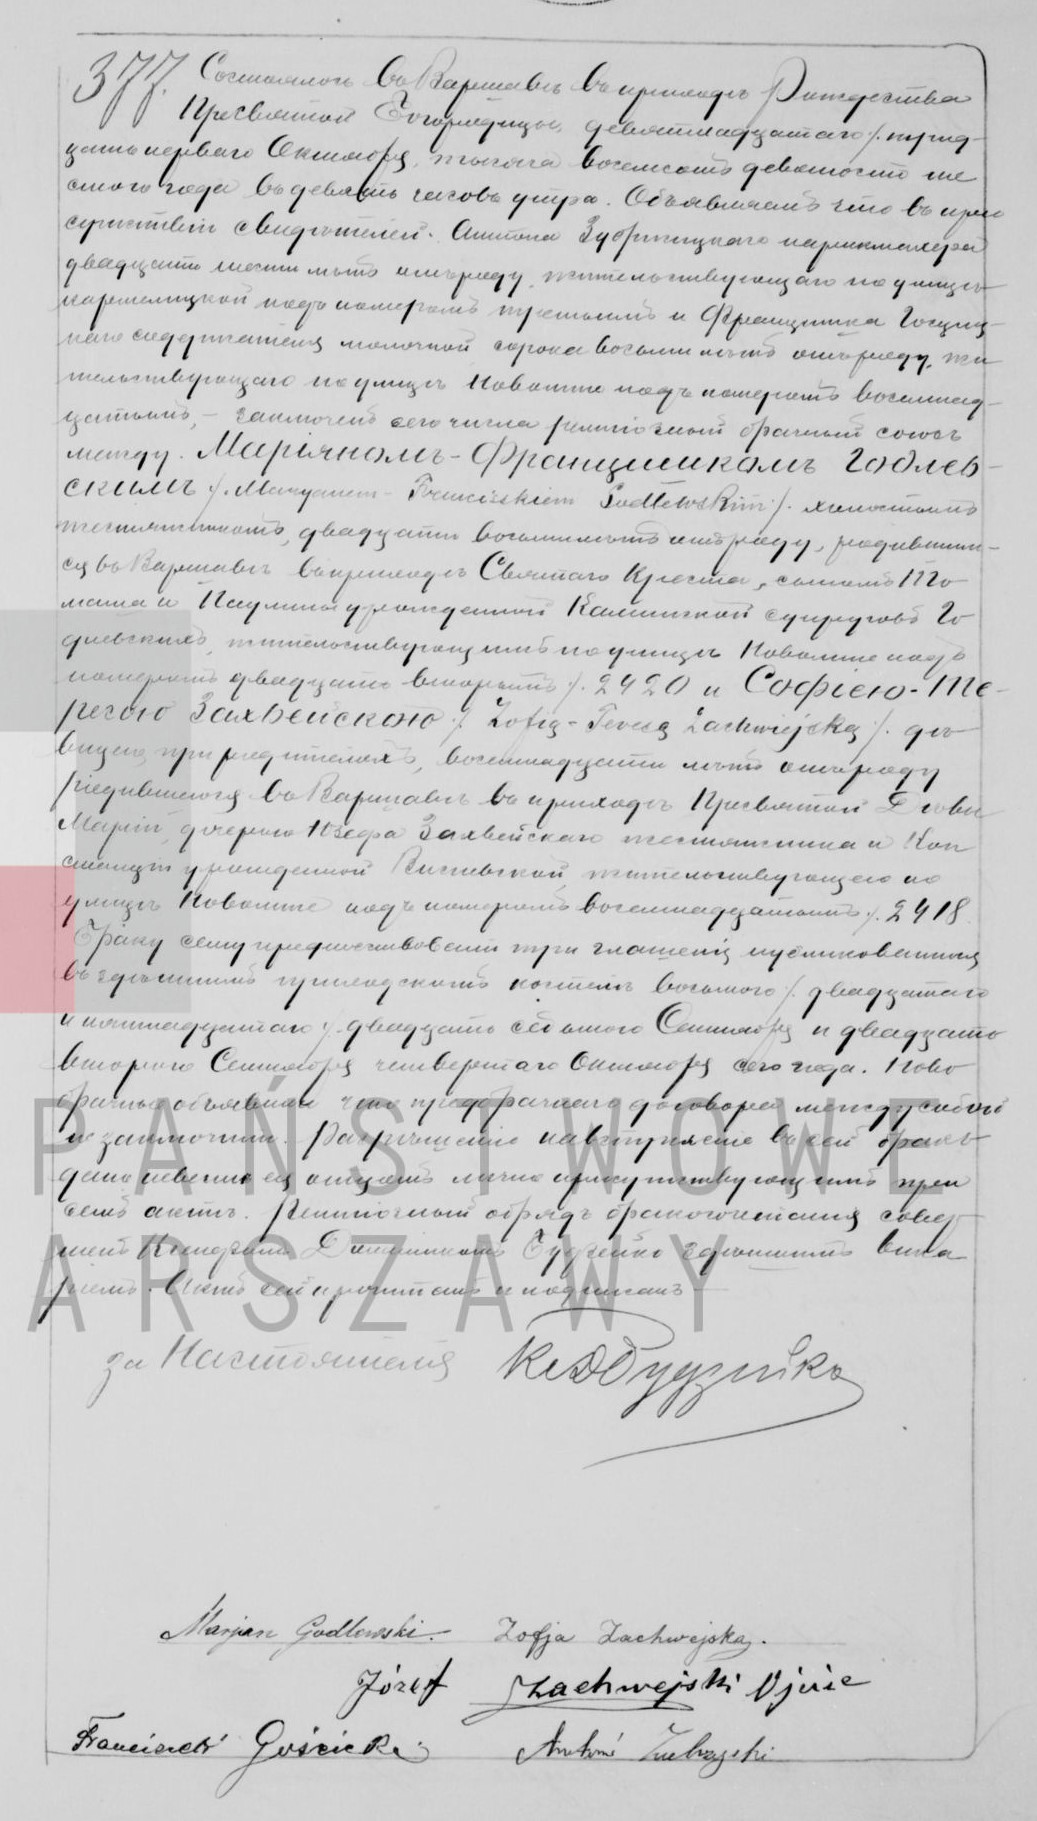 377. Состоялось въ Варшавѣ въ приходѣ Рождества
Пресвятой Богородицы, девятнадцатаго /. трид-
цать перваго Октября, тысяча восемсотъ девяносто ше
стого года въ девять часовъ утра. Объявляемъ что въ при
сутствіи свидѣтелей. Антона парикмахера
двадцати шести лѣтъ отъ роду, жительствующаго по улицѣ
кармелицкой подъ номеромъ третьимъ и Францишка Госциц-
каго содержателя молочной сорока восьми лѣтъ отъ роду, жи
тельствующаго по улицѣ Новолипе подъ номеромъ восемнад-
цатымъ, – заключенъ сего числа религіозный брачный союзъ
между. Маріяномъ-Францишкомъ Годлев-
скимъ /. Maryanem-Franciszkiem Godlewskim /. холостымъ
жестянникомъ, двадцати восьми лѣтъ отъ роду, родившим-
ся въ Варшавѣ въ приходѣ Святаго Креста, сыномъ То
маша и Паулины урожденной Калинской супруговъ Го
длевскихъ, жительствующимъ по улицѣ Новолипе подъ
номеромъ двадцать вторымъ /. 2420 и Софіею-Те-
ресою Захвейскою /. Zofią-Teresą Zachwiejską /. дѣ
вицею при родителяхъ, восемнадцати лѣтъ отъ роду
родившеюся въ Варшавѣ въ приходѣ Пресвятой Дѣвы
Маріи, дочерью Юзефа Захвейскаго жестянника и Кон
станціи урожденной жительствующею по
улицѣ Новолипе подъ номеромъ восемнадцатымъ /. 2418.
Браку сему предшествовали три оглашенія публикованныя
въ здѣшнемъ приходскомъ костелѣ восьмого /. двадцатаго
и пятнадцатаго /. двадцать седьмого Сентября и двадцать
второго Сентября четвертаго Октября сего года. Ново
брачные объявили что предбрачнаго договора между собою
не заключили. Разрѣшеніе на вступленіе въ сей бракъ
дано невѣстѣ ея отцомъ лично присутствующимъ при
семъ актѣ. Религіозный обрядъ бракосочетанія совер
шенъ Ксендзомъ Доминикомъ Будзейко здѣшнимъ вика
ріемъ. Актъ сей прочитанъ и подписанъ
за Настоятеля Кс Д Будзейко
Marjan Godlewski. Zofja Zachwejska.
Józef Zachwejski Ojciec
Franciszek Gościcki Antoni
PAŃSTWOWE
ARSZAWY